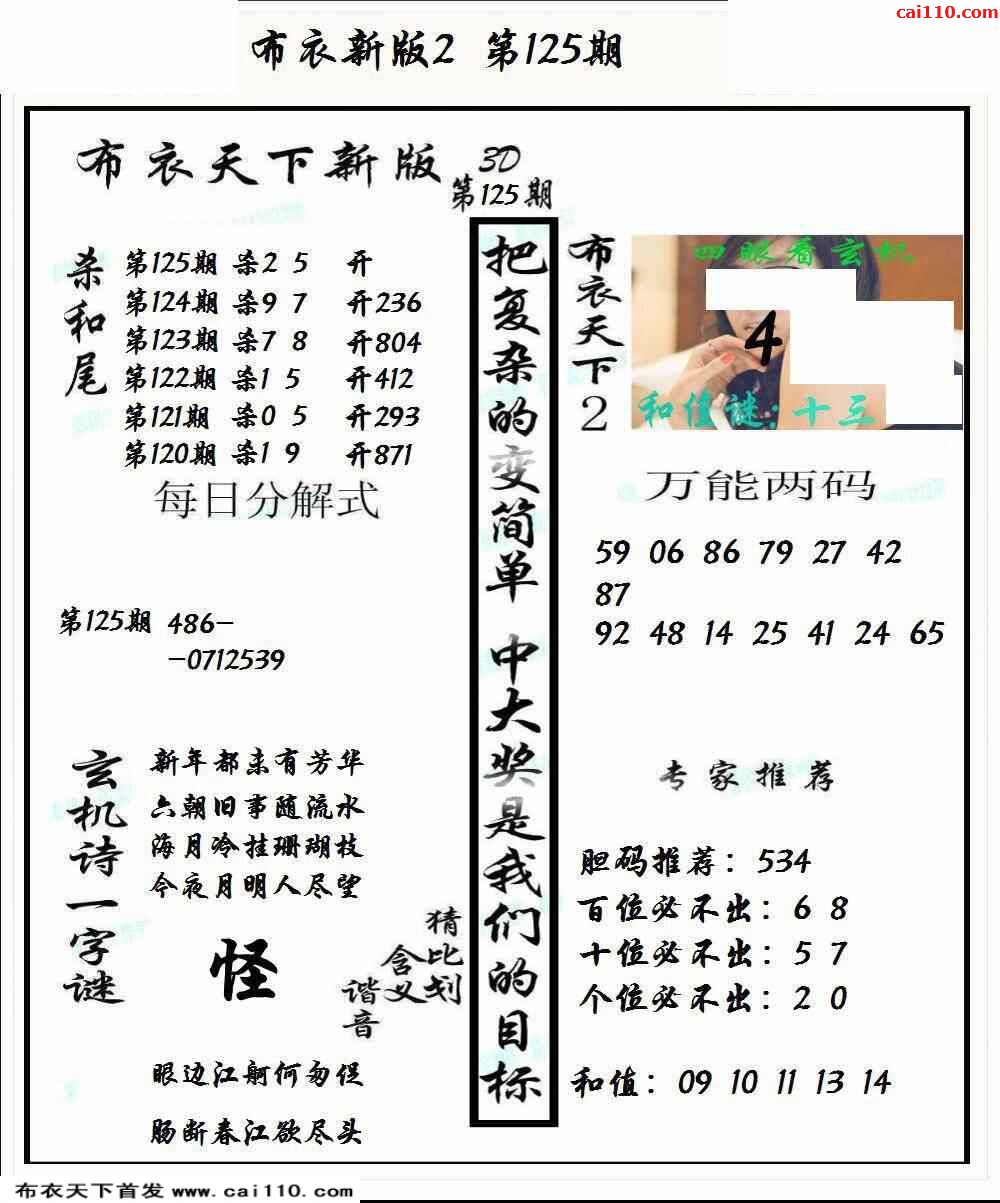 cai110.com
布衣新版2 第125期
布衣天下新版 3D
第125期
杀和尾
第125期 杀2 5 开
第124期 杀9 7 开236
第123期 杀7 8 开804
第122期 杀1 5 开412
第121期 杀0 5 开293
第120期 杀1 9 开871
每日分解式
第125期 486-
-0712539
玄机诗一字谜
新年都未有芳华
六朝旧事随流水
海月冷挂珊瑚枝
今夜月明人尽望
怪
猜比划
含义
谐音
眼边江舸何匆促
肠断春江欲尽头
把复杂的变简单 中大奖是我们的目标
布衣天下2
四眼看玄机
4
和值谜:十三
万能两码
59 06 86 79 27 42
87
92 48 14 25 41 24 65
专家推荐
胆码推荐：534
百位必不出：6 8
十位必不出：5 7
个位必不出：2 0
和值：09 10 11 13 14
布衣天下首发 www.cai110.com